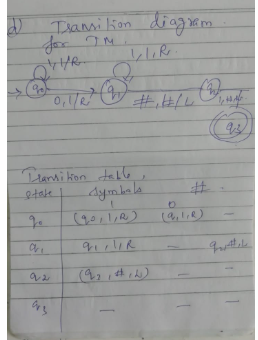 d) Transition diagram
for TM.
1,1/R. 1,1,R.
→ q0 0,1/R q1 #,#/L q2
q3
Transition table,
state symbols
1 0 #
q0 (q0,1,R) (q1,1,R) —
q1 q1,1,R — q2,#,L
q2 (q3,#,L) — —
q3 — — —